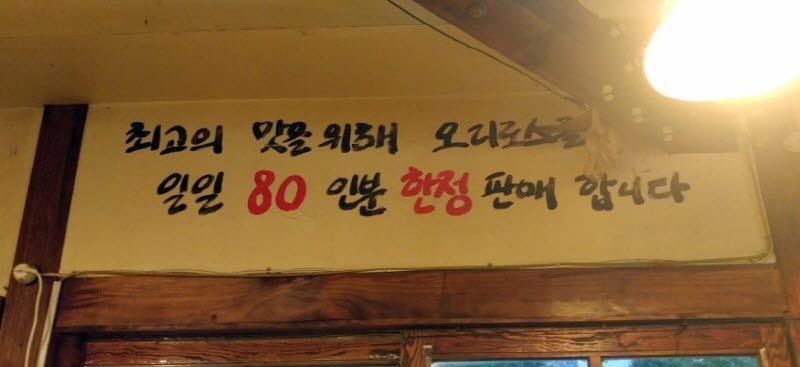 최고의 맛을 위해 오리로스를
일일 80 인분 한정 판매 합니다